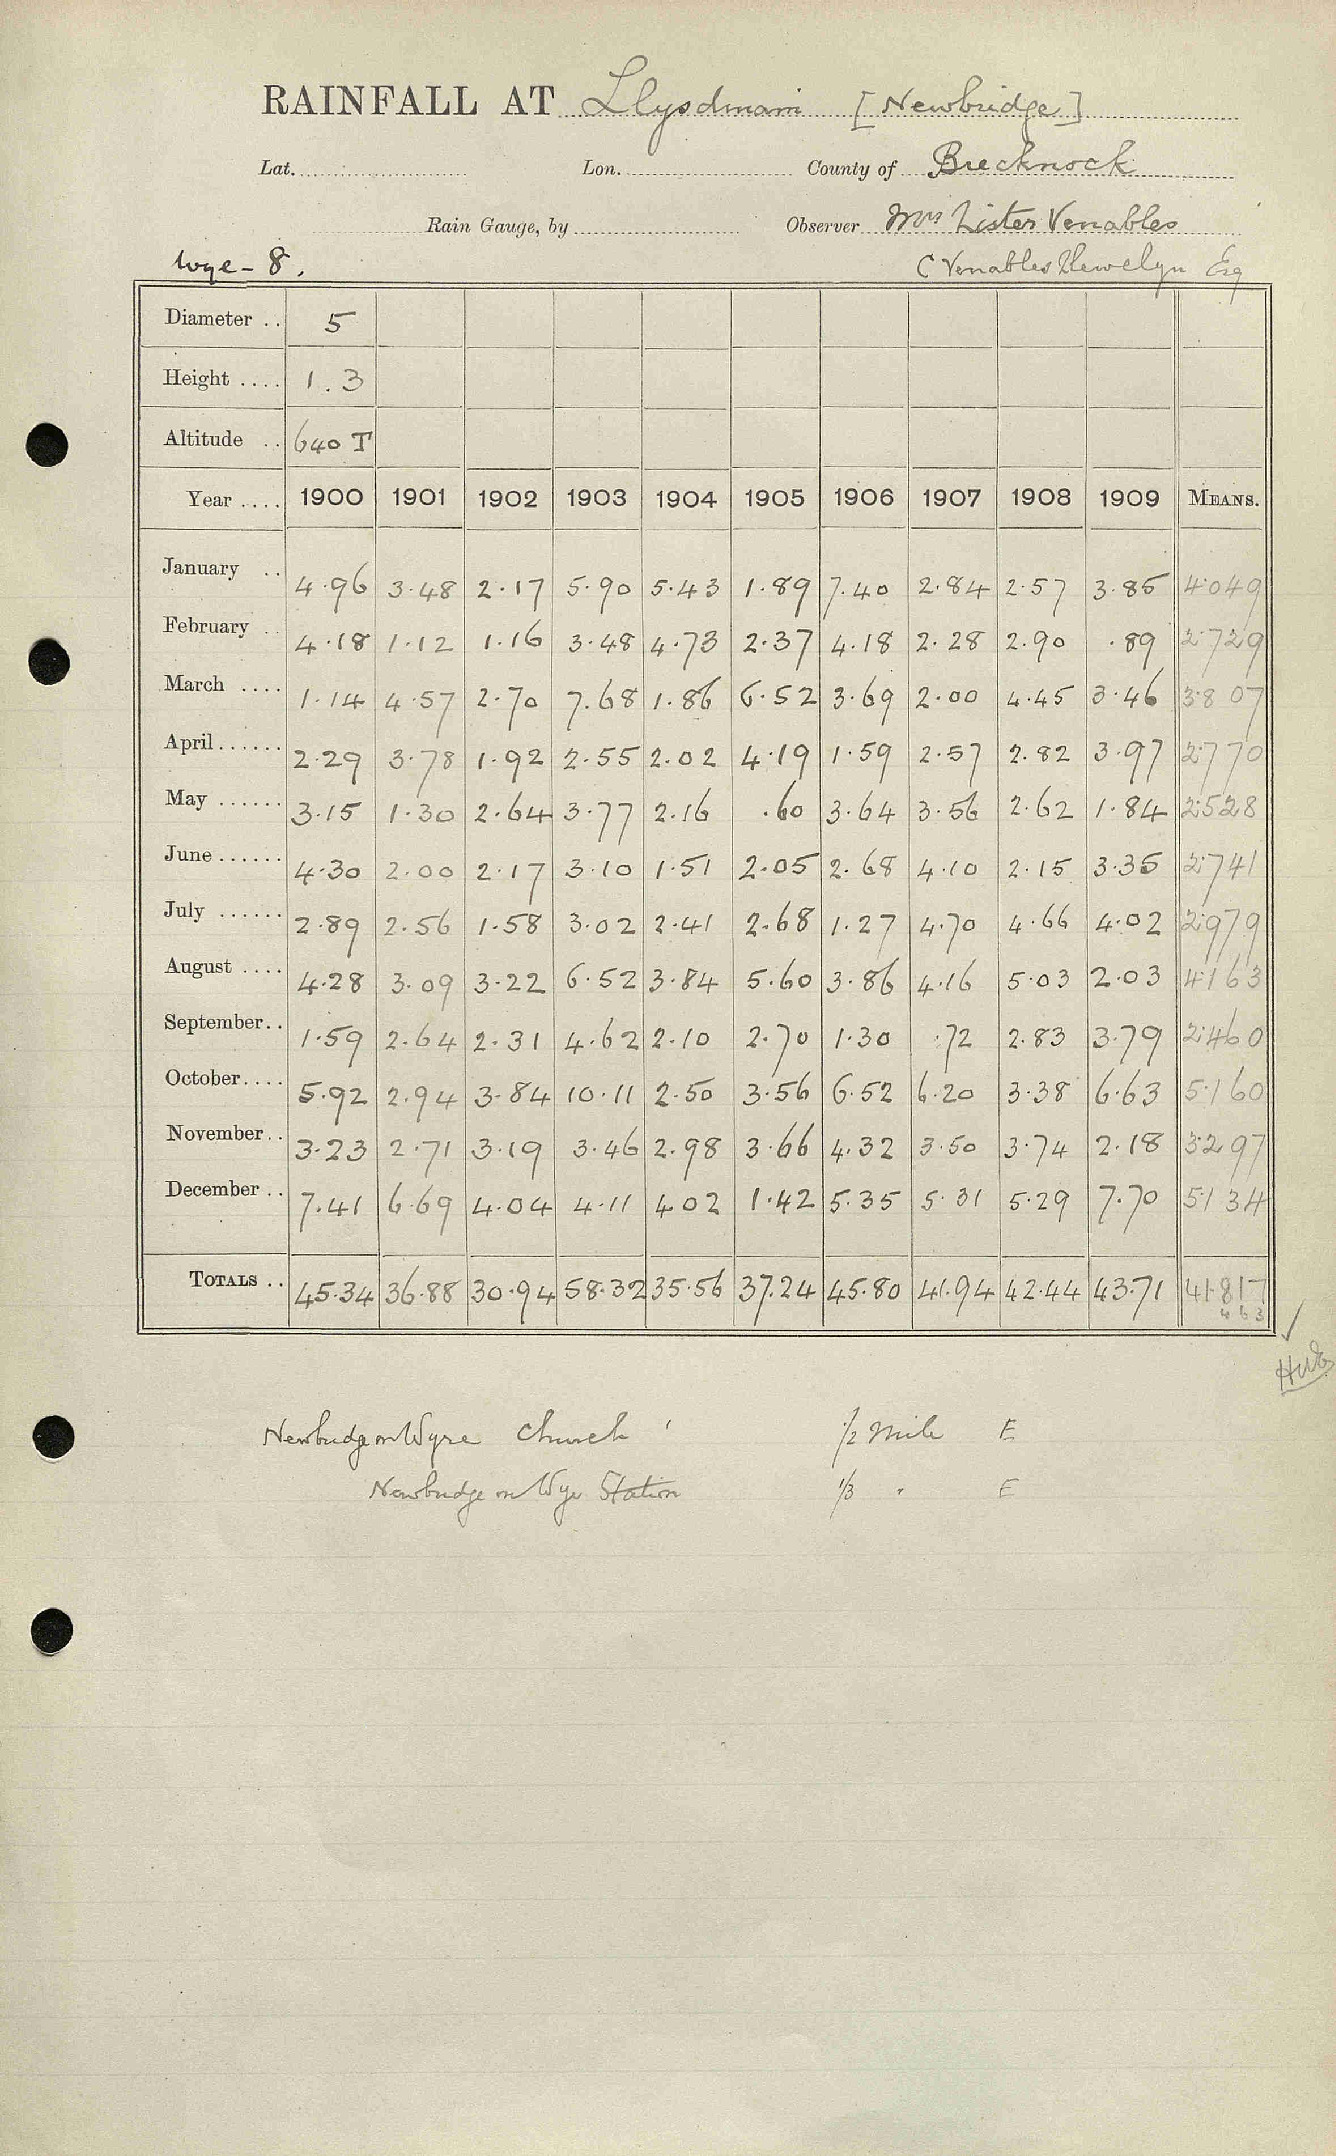 RAINFALL AT Llysdinam [Newbridge]
Lat. Lon. County of Brecknock
Rain Gauge, by Observer Mrs Lister Venables
Wye - 8. C Venables Llewelyn Esq
Diameter .. 5
Height .... 1.3
Altitude .. 640 T
Year .... 1900 1901 1902 1903 1904 1905 1906 1907 1908 1909 MEANS.
January .. 4.96 3.48 2.17 5.90 5.43 1.89 7.40 2.84 2.57 3.85 4.049
February .. 4.18 1.12 1.16 3.48 4.73 2.37 4.18 2.28 2.90 .89 2.729
March .... 1.14 4.57 2.70 7.68 1.86 6.52 3.69 2.00 4.45 3.46 3.807
April ...... 2.29 3.78 1.92 2.55 2.02 4.19 1.59 2.57 2.82 3.97 2.770
May ...... 3.15 1.30 2.64 3.77 2.16 .60 3.64 3.56 2.62 1.84 2.528
June ...... 4.30 2.00 2.17 3.10 1.51 2.05 2.68 4.10 2.15 3.35 2.741
July ...... 2.89 2.56 1.58 3.02 2.41 2.68 1.27 4.70 4.66 4.02 2.979
August .... 4.28 3.09 3.22 6.52 3.84 5.60 3.86 4.16 5.03 2.03 4.163
September.. 1.59 2.64 2.31 4.62 2.10 2.70 1.30 .72 2.83 3.79 2.460
October.... 5.92 2.94 3.84 10.11 2.50 3.56 6.52 6.20 3.38 6.63 5.160
November.. 3.23 2.71 3.19 3.46 2.98 3.66 4.32 3.50 3.74 2.18 3.297
December .. 7.41 6.69 4.04 4.11 4.02 1.42 5.35 5.31 5.29 7.70 5.134
TOTALS .. 45.34 36.88 30.94 58.32 35.56 37.24 45.80 41.94 42.44 43.71 41.817
Newbridge on Wyre Church 1/2 Mile E
Newbridge on Wye Station 1/3 " E